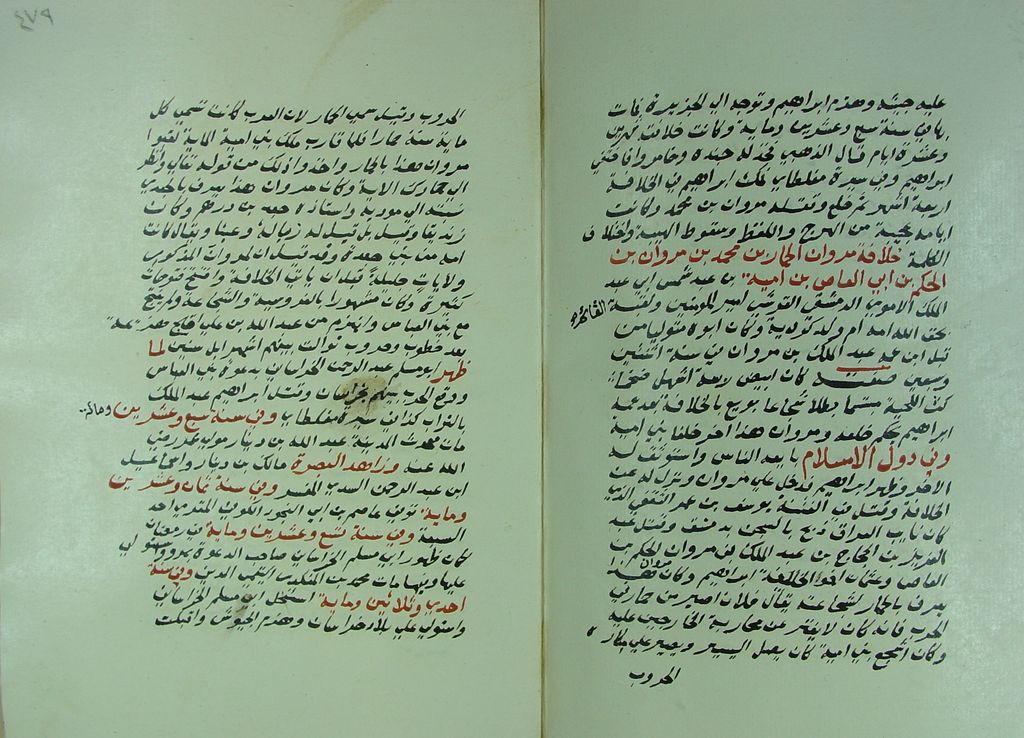 عليه جيشه وهزم ابراهيم وتوجه الي الجزيرة فمات
بها في سنة سبع وعشرين وماية وكانت خلافته شهرين
وعشرة ايام قال الذهبي فجهز له جنده وخامروا فاختفي
ابراهيم وفي سيرة مغلطاي ملك ابراهيم في الخلافة
اربعة اشهر ثم خلع وقتله مروان بن محمد وكانت
ايامه عجيبة من الهرج واللغط وسقوط الهيبة واختلاف
الكلمة خلافة مروان الحمار بن محمد بن مروان بن
الحكم بن ابي العاص بن امية بن عبد شمس ابي عبد
الملك الاموي الدمشقي القرشي امير المومنين ولقبه القائم
بحق الله امه ام ولد كردية وكان ابوه متوليا من
قبل ابن عمه عبد الملك بن مروان في سنة اثنتين
وسبعين كان ابيض ربعة اشهل ضخما
كث اللحية مهيبا بطلا شجاعا بويع بالخلافة بعد عمه
ابراهيم بحكم خلعه ومروان هذا اخر خلفا بني امية
وفي دول الاسلام بايعه الناس واستوثق له
الامر وظهر ابراهيم فدخل علي مروان ونزل له عن
الخلافة وقتل في الفتنة يوسف بن عمر الثقفي الذي
كان نايب العراق ذبح بالسجن بدمشق وقتل عبد
العزيز بن الحجاج بن عبد الملك بن مروان الحكم بن
العاص وعثمان اخو الخليفة ابراهيم وكان مروان هذا
يعرف بالحمار لشجاعته يقال فلان اصبر من حمار في
الحرب فانه كان لا يفتر عن محاربة الخارجين عليه
وكان اشجع بني امية كان يصل السير بالسير ويصبر علي مكاره
الحروب
الحروب وقيل سمي الحمار لان العرب كانت تسمي كل
ماية سنة حمارا فلما قارب ملك بني امية الماية لقبوا
مروان هذا بالحمار واخذوا ذلك من قوله تعالي وانظر
الي حمارك الاية وكان مروان هذا يعرف بالجعدي
نسبة الي مودبه واستاذه جعد بن درهم وكانت
زنديقا وقيل بل قيل له
امه من بني جعدة وقد قيل ان لمروان المذكور
ولايات جليلة قبل ان ياتي الخلافة وافتتح فتوحات
كثيرة وكان مشهورا بالفروسية والشجاعة
مع بني العباس وانهزم من عبد الله بن علي اقبح هزيمة
بعد خطوب وحروب توالت بينهم اشهرا بل سنين لما
ظهر ابو مسلم عبد الرحمن الخراساني بدعوة بني العباس
ووقع الحرب بينهم بخراسان وقتل ابراهيم عبد الملك
بالتراب كذا في سيرة مغلطاي وفي سنة سبع وعشرين وماية
مات محدث المدينة عبد الله بن دينار مولي عمر رضي
الله عنه وزاهد البصرة مالك بن دينار واسماعيل
ابن عبد الرحمن السدي المفسر وفي سنة ثمان وعشرين
وماية توفي عاصم بن ابي النجود الكوفي المقري احد
السبعة وفي سنة تسع وعشرين وماية في رمضان
كان ظهور ابي مسلم الخراساني صاحب الدعوة بمرو واستولي
عليها وفيها مات محمد بن المنكدر التيمي الدين وفي سنة
احدي وثلاثين وماية استفحل ابو مسلم الخراساني
واستولي علي بلاد خراسان وهزم الجيوش واقبلت
٤٧٩